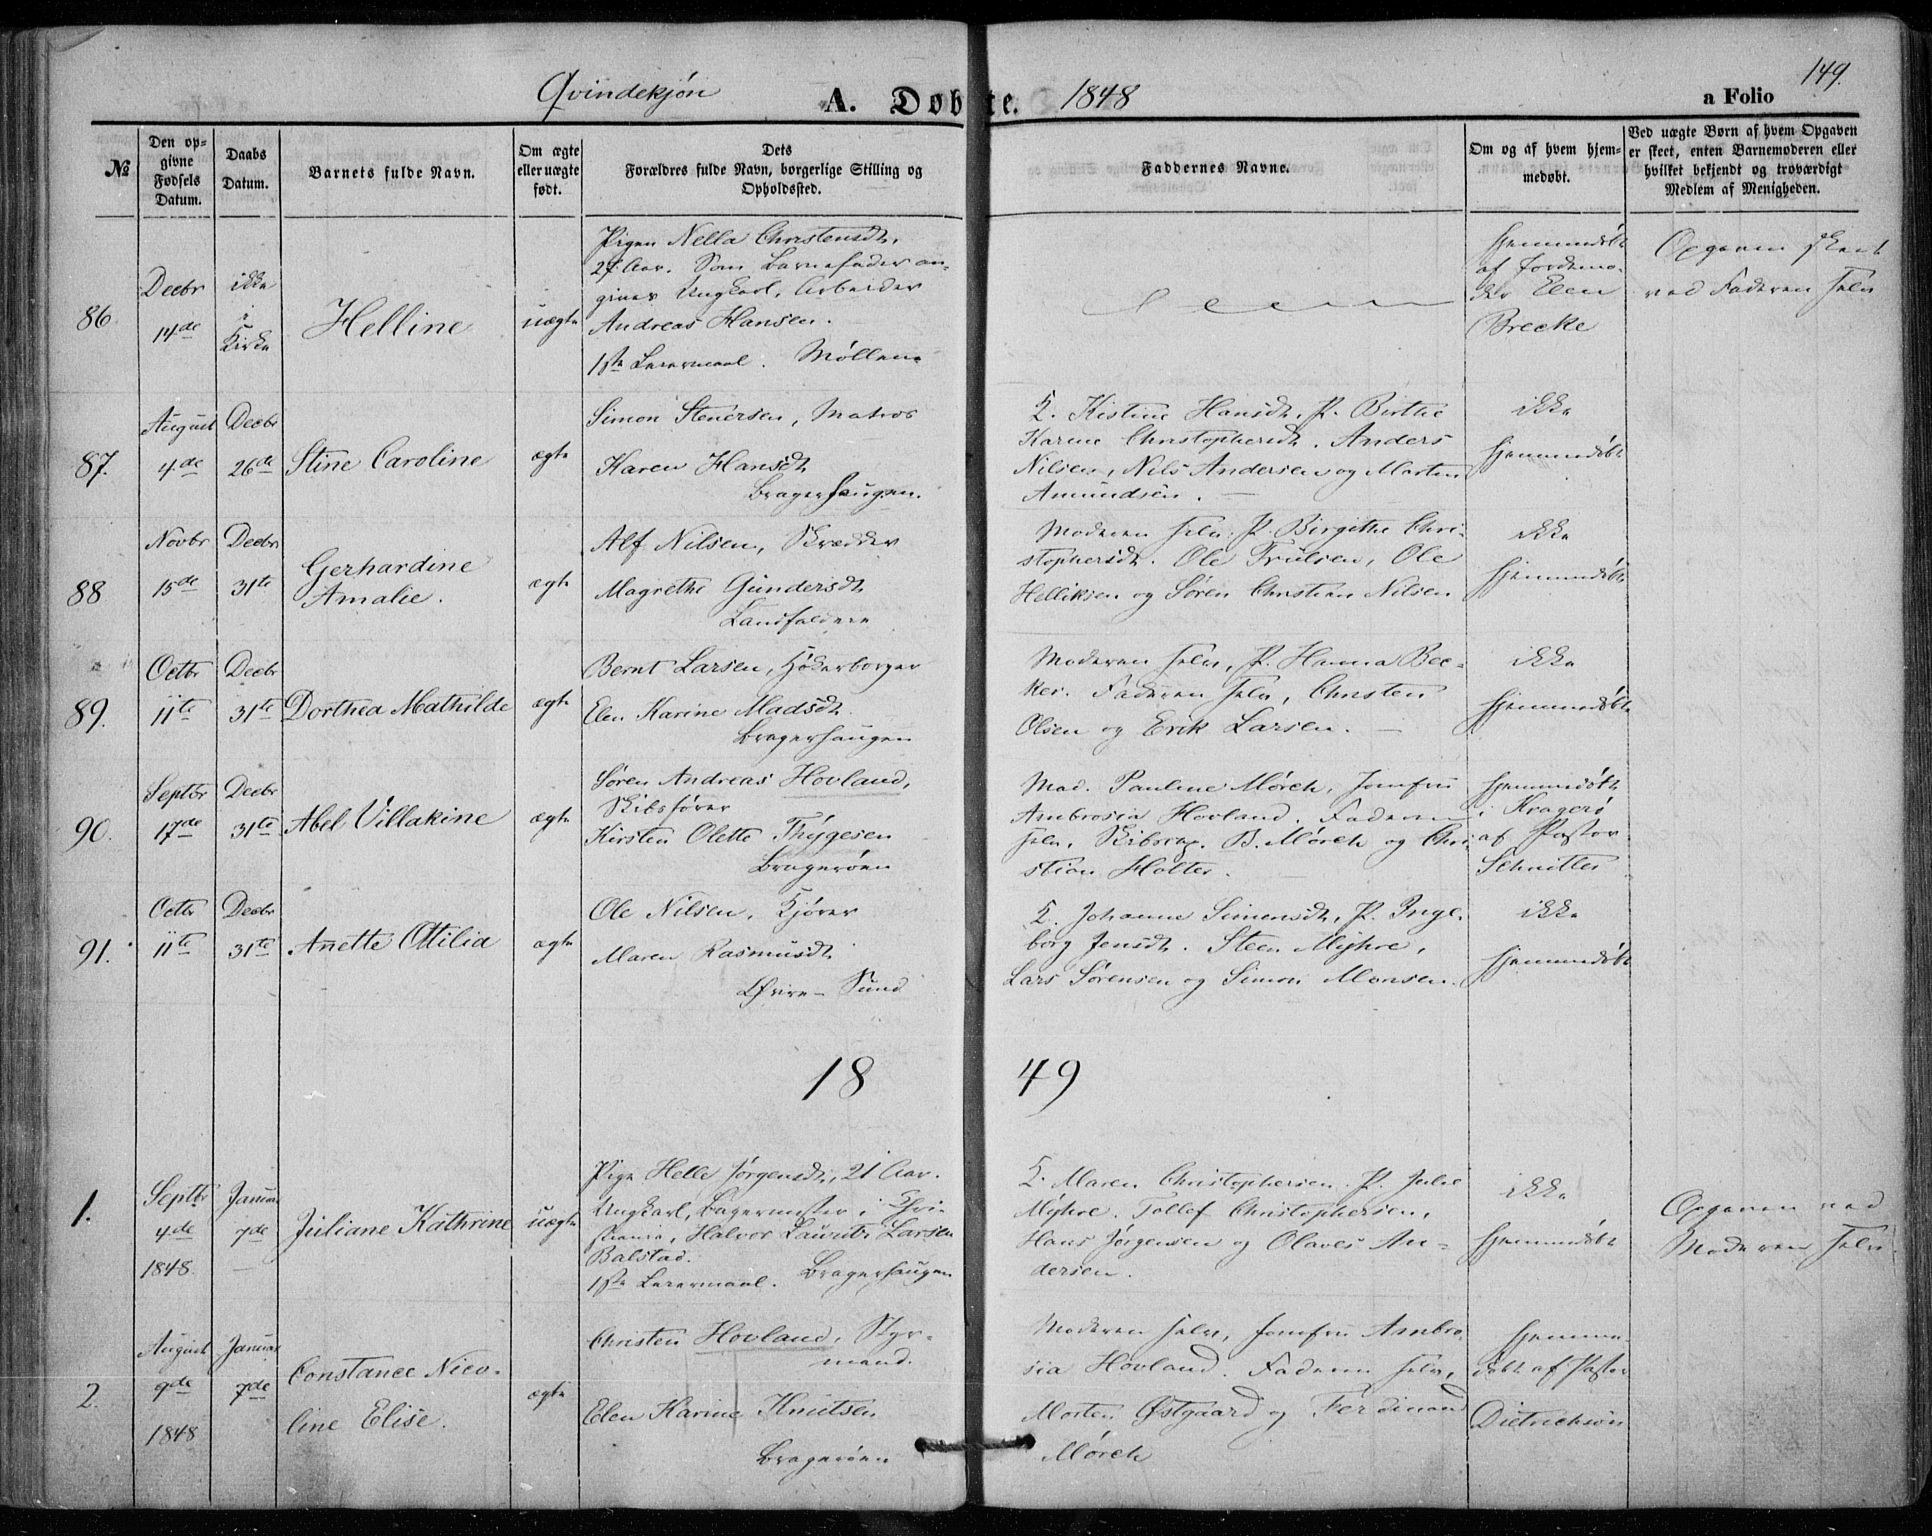 Qvindekjøn A. Døbte. 1848 a Folio 149.
No
Den op-
givne
Fødsels
Datum.
Daabs
Datum.
Barnets fulde Navn.
Om ægte
eller uægte
født.
Dets
Forældres fulde Navn, borgerlige Stilling og
Opholdssted.
Faddernes Navne.
Om og af hvem hjem-
medøbt.
Ved uægte Børn af hvem Opgaven
er skeet, enten Barnemoderen eller
hvilket bekjendt og troværdigt
Medlem af Menigheden.
86.
Decbr
14de
ikke
i
Kirke
Helline
uægte
Pigen Nella Christensdt,
27 Aar. Som Barnefader an-
gives Ungkarl, Arbeider
Andreas Hansen.
1ste Leiermaal. Møllene
Hjemmedøbt
af Jordemo-
der Elen
Brecke
Opgaven skeet
ved Faderen selv
87.
August
4de
Decbr
26de
Stine Caroline
ægte
Simon Stenersen, Matros
Karen Hansdt
Bragerhaugen.
K. Kistine Hansdt, P. Birthe
Karine Christophersdt. Anders
Nilsen, Nils Andersen og Morten
Amundsen.
ikke
hjemmedøbt
88
Novbr
15de
Decbr
31te
Gerhardine
Amalie.
ægte
Alf Nilsen, Skrædder
Magrethe Gundersdt
Landfaldene
Moderen selv, P. Birgithe Chri-
stophersdt. Ole Trulsen, Ole
Helliksen og Søren Christian Nilsen
ikke
hjemmedøbt
89.
Octbr
11te
Decbr
31te
Dorthea Mathilde
ægte
Bernt Larsen, Høkerborger
Elen Karine Madsdt.
Bragerhaugen
Moderen selv, P. Hanna Bec-
ker. Faderen selv, Christen
Olsen og Erik Larsen.
ikke
hjemmedøbt
90.
Septbr
17de
Decbr
31te
Abel Villakine
ægte
Søren Andreas Hovland,
Skibsfører
Kirsten Olette Thygesen
Bragerøen
Mad. Pauline Mørch, Jomfru
Ambrosia Hovland. Faderen
selv, Skibscap. B. Mørch og Chri-
stian Holter.
hjemmedøbt
i Kragerø
af Pastor
Schnitler
91.
Octbr
11te
Decbr
31te
Anette Ottilia
ægte
Ole Nilsen, Kjører
Maren Rasmusdt
Øvre-Sund
K. Johanne Simensdt, P. Inge-
borg Jensdt. Steen Myhre,
Lars Sørensen og Simon Monsen.
ikke
hjemmedøbt
18 49
1.
Septbr
4de
1848.
Januar
7de
Juliane Kathrine
uægte
Pige Helle Jørgensdt, 21 Aar.
Ungkarl, Bagermester i Chri-
stiania, Halvor Laurits Larsen
Balstad.
1ste Leiermaal. Bragerhaugen
K. Maren Christophersen. P. Julie
Myhre. Tollef Christophersen,
Hans Jørgensen og Olaves An-
dersen.
ikke
hjemmedøbt
Opgaven ved
Moderen selv.
2.
August
9de
1848
Januar
7de
Constance Nico-
line Elise.
ægte
Christen Hovland, Styr-
mand.
Elen Karine Knutsen
Bragerøen
Moderen selv, Jomfru Ambro-
sia Hovland. Faderen selv,
Morten Østgaard og Ferdinand
Mørch
hjemme-
døbt af Pastor
Dietrichson